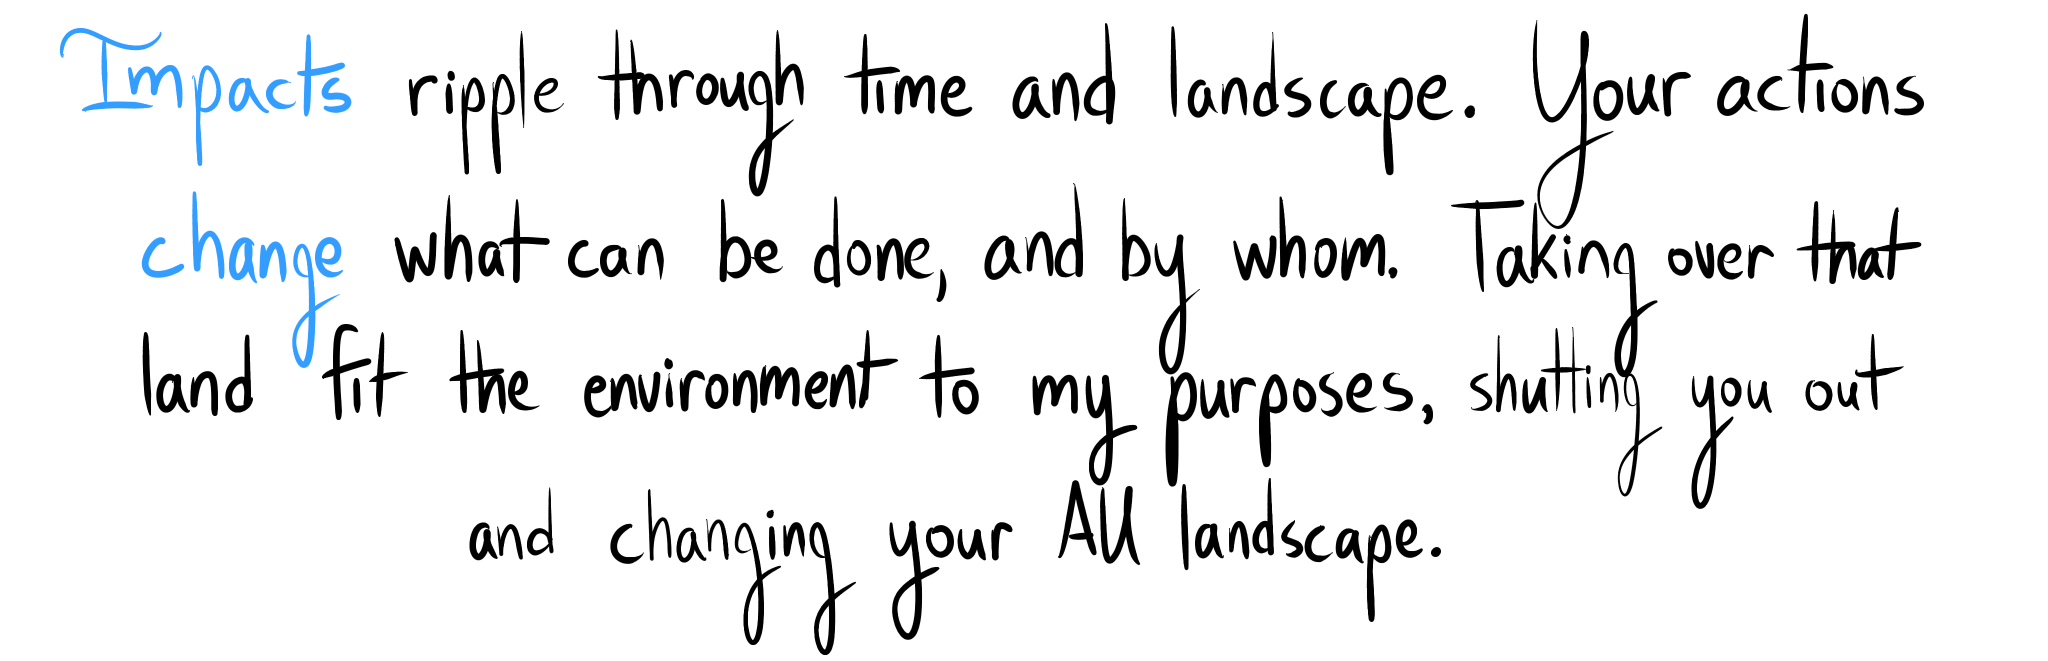 Impacts ripple through time and landscape. Your actions
change what can be done, and by whom. Taking over that
land fit the environment to my purposes, shutting you out
and changing your AU landscape.